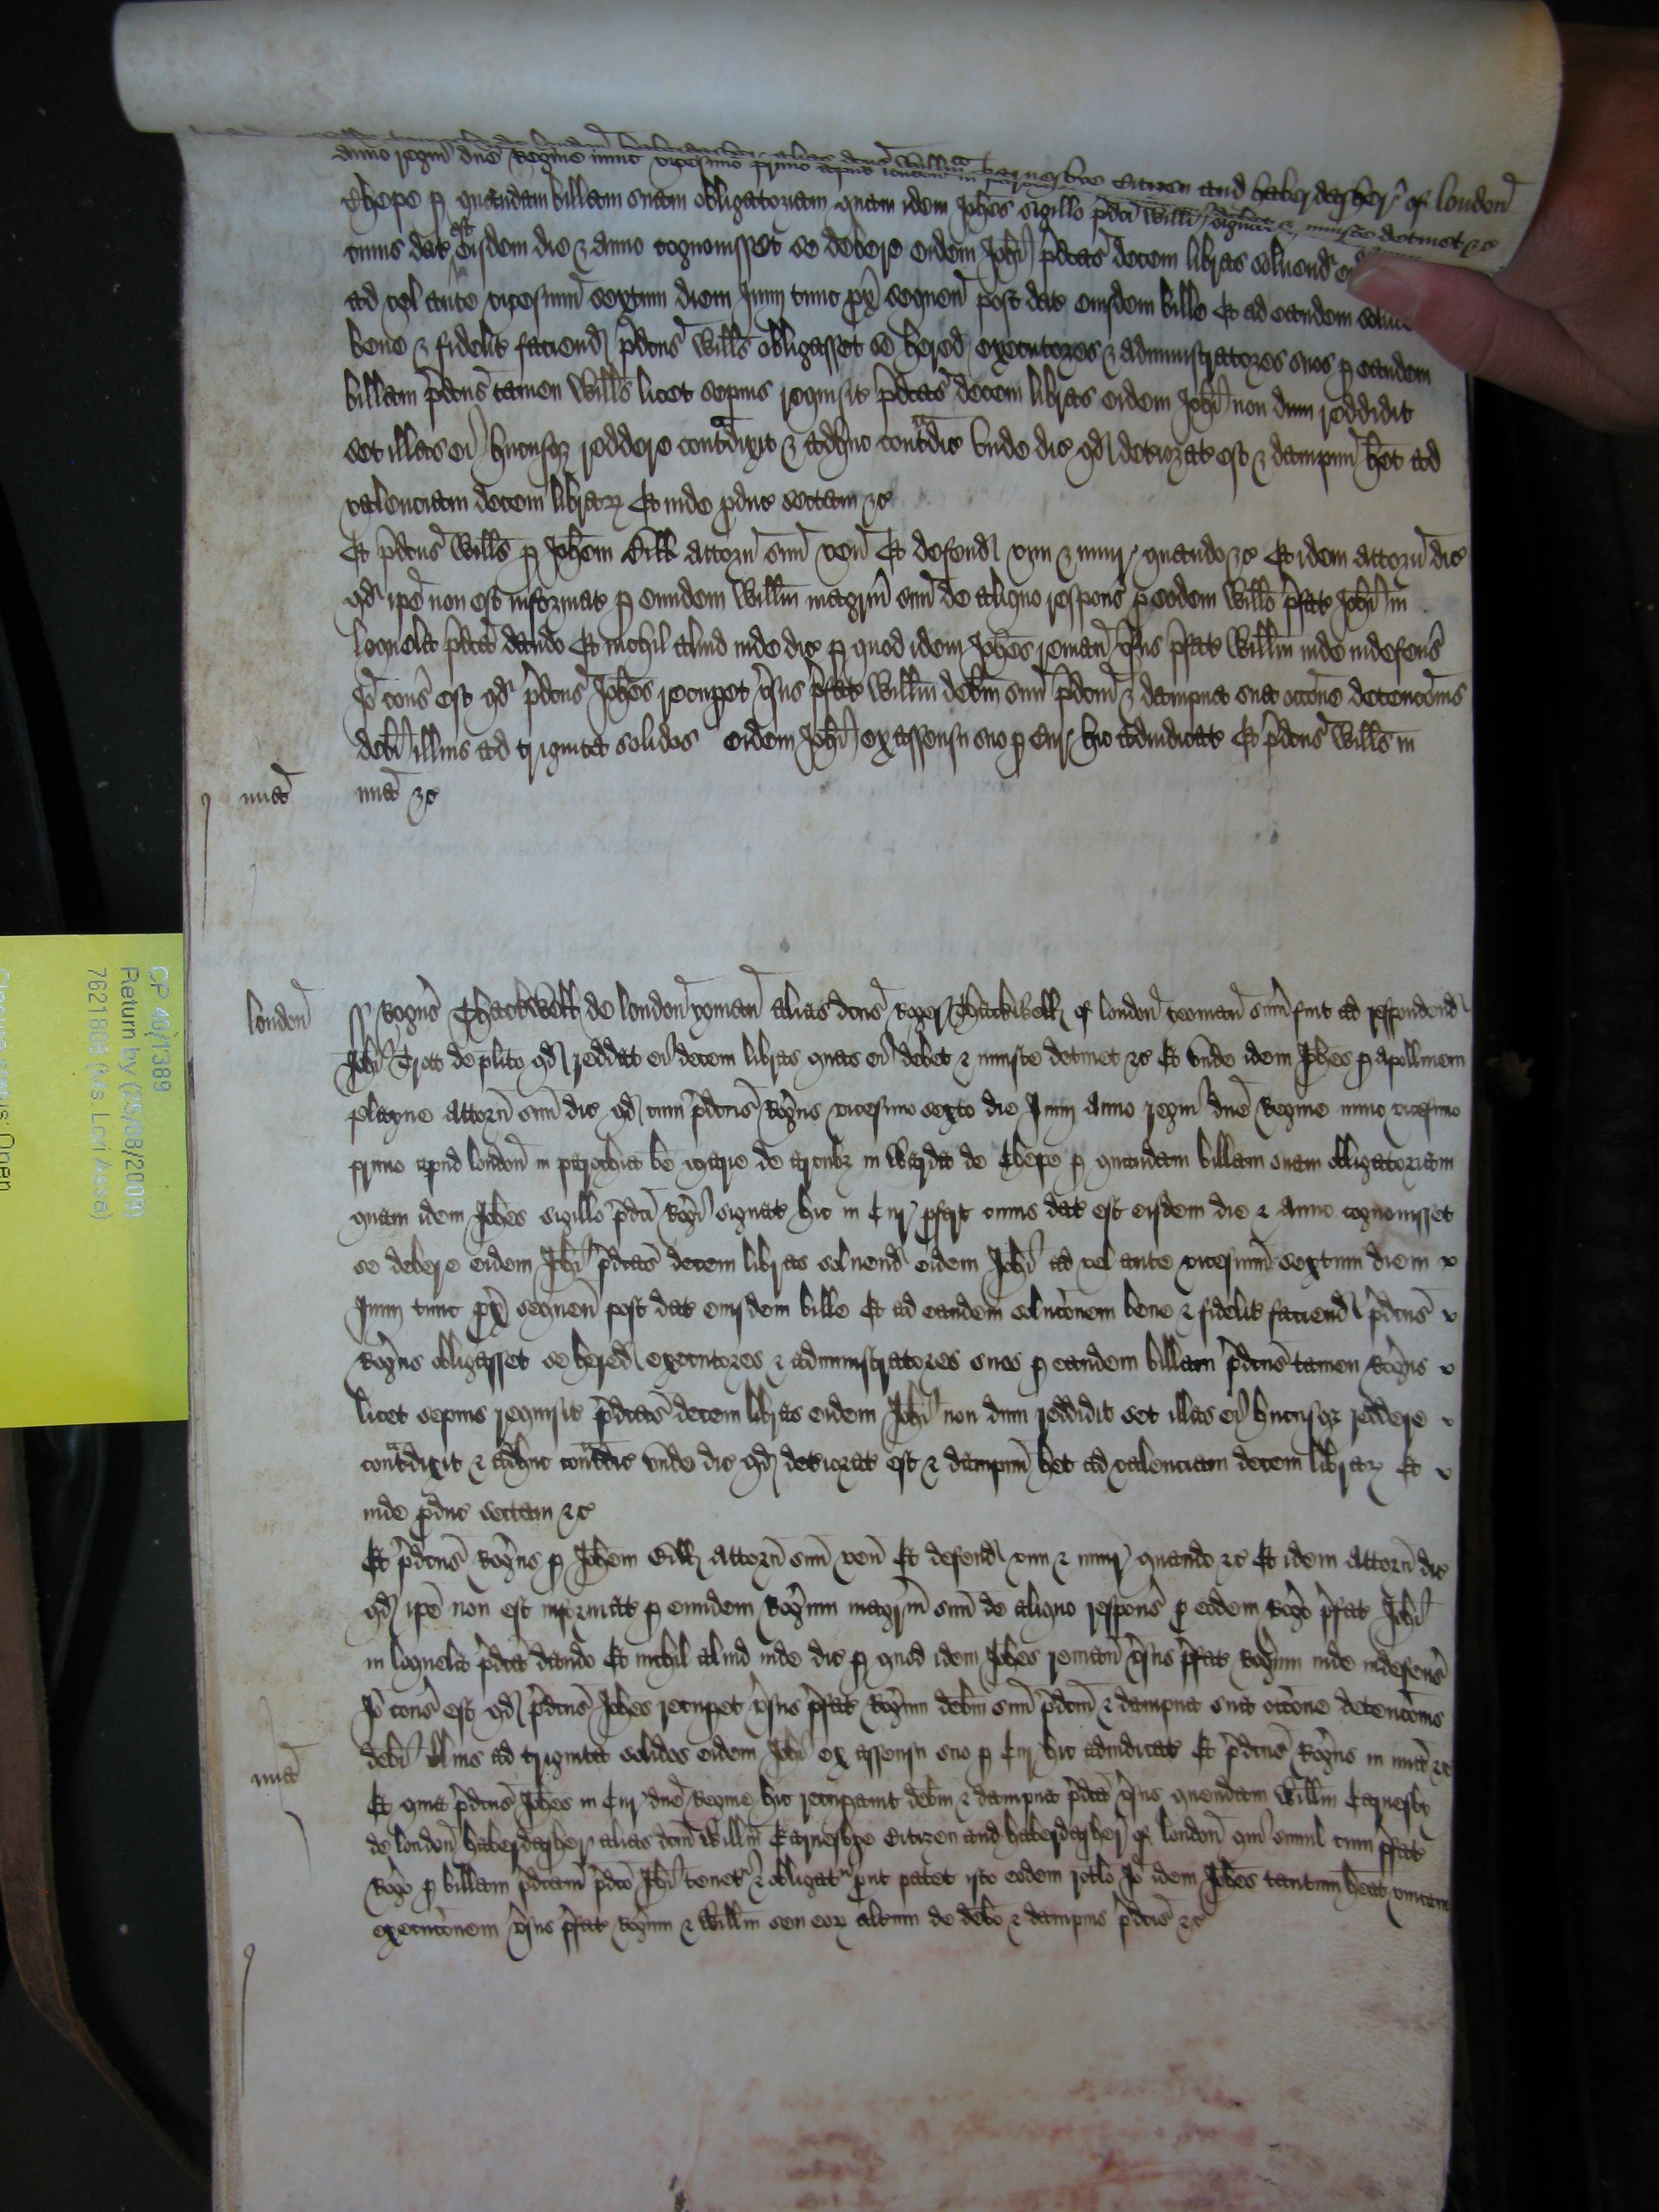 anno regni dne Regine nunc vicesimo primo apud london in
Citizen and haberdasher of london
Chepe p quandam billam suam obligatoriam quam idem Johes sigillo pdci Willi signat iniuste detinet &c
cuius dat est eisdem die & anno cognovisset se debere eidem Johi pdcas decem libras solvend
ad vel ante vicesimu sextum diem Junii tunc px sequen post dat eiusdem bille Et ad eandem
bene & fidelit faciend pdcus Wills obligasset se hered executores & administratores suos p eandem
billam pdcus tamen Wills licet sepius requisit pdcas decem libras eidem Johi non dum reddidit
set illas ei hucusq reddere contadixit & adhuc contadic unde dic qd deteriorat est & dampnu het ad
valenciam decem librar Et inde pduc sectam &c
Et pdcus Wills p Johem Hill attorn suu ven Et defend vim & iniur quando &c Et idem attorn dic
qd ipe non est informat p eundem Willm magrm suu de aliquo respons p eodem Willo pfat Johi in
loquela pdca dando Et nichil aliud inde dic p quod idem Johes remane vsus pfat Willm inde indefens
Io cons est qd pdcus Johes recupet vsus pfat Willm debm suu pdcm & dampna sua occone detencois
debi illius ad triginta solidos eidem Johi ex assensu suo p Cur hic adiudicat Et pdcus Wills in
mia mia &c
london ss Rogus Thackwell de london yoman alias dcus Roger Thackwell of london yeoman sum fuit ad respondend
Johi Trott de plito qd reddat ei decem libras quas ei debet & iniuste detinet &c Et unde idem Johes p apollinem
playne attorn suu dic qd cum pdcus Rogus vicesimo sexto die Junii anno regni dne Regine nunc vicesimo
primo apud london in parochia be marie de arcubz in Warda de Chepe p quandam billam suam obligatoriam
quam idem Johes sigillo pdci Rogi signat hic in Cur pfert cuius dat est eisdem die & anno cognovisset
se debere eidem Johi pdcas decem libras solvend eidem Johi ad vel ante vicesimu sextum diem
Junii tunc px sequen post dat eiusdem bille Et ad eandem solucoem bene & fidelit faciend pdcus
Rogus obligasset se hered executores & administratores suos p eandem billam pdcus tamen Rogus
licet sepius requisit pdcas decem libras eidem Johi non dum reddidit set illas ei hucusqz reddere
contadixit & adhuc contadic unde dic qd deteriorat est & dampnu het ad valenciam decem librar Et
inde pduc sectam &c
Et pdcus Rogus p Johem Hill attorn suu ven Et defend vim & iniur quando &c Et idem attorn dic
qd ipe non est informat p eundem Rogum magrm suu de aliquo respons p eodem Rogo pfat Johi
in loquela pdca dando Et nichil aliud inde dic p quod idem Johes remane vsus pfat Rogum inde indefens
Io cons est qd pdcus Johes recupet vsus pfat Rogum debm suu pdcm & dampna sua occone detencois
debi illius ad triginta solidos eidem Johi ex assensu suo p Cur hic adiudicat Et pdcus Rogus in mia &c
mia
Et quia pdcus Johes in Cur dne Regine hic recupavit debm & dampna pdca vsus quendam Willm Carnesby
de london haberdasher alias dcm Willm Carnesbye Citizen and haberdasher of london qui simul cum pfat
Rogo p billam pdcam pdco Johi tenet & obligat put patet isto eodem rotlo Io idem Johes tantum heat unicam
execucoem vsus pfat Rogum & Willm seu eor altum de debo & dampnis pdcis &c
CP 40/1389
Return by (25/08/2009)
7621808 (Ms. Lori Aasa)
Closure status: Open